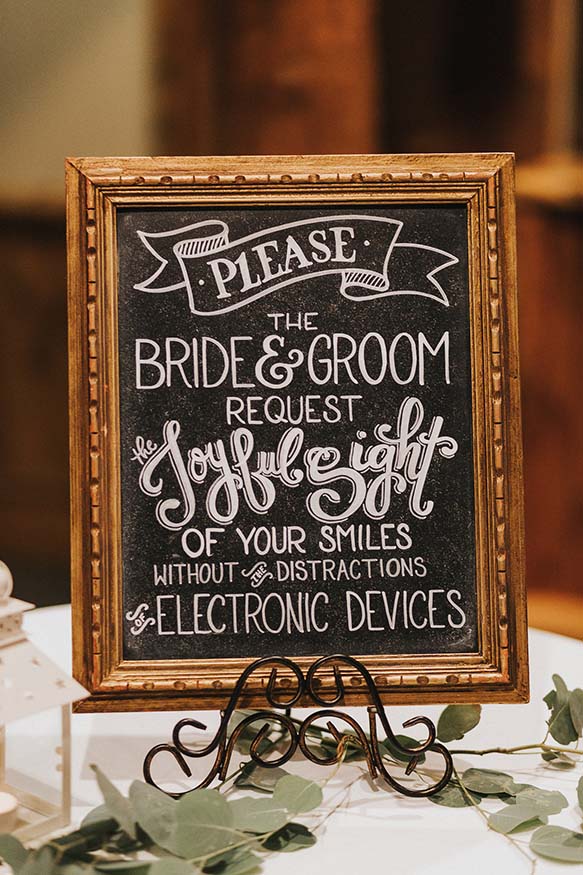 · PLEASE ·
THE
BRIDE & GROOM
REQUEST
the Joyful Sight
OF YOUR SMILES
WITHOUT THE DISTRACTIONS
of ELECTRONIC DEVICES